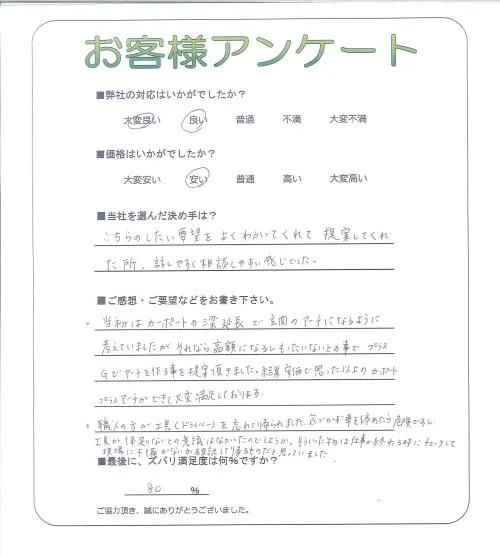 お客様アンケート
■弊社の対応はいかがでしたか？
大変良い 良い 普通 不満 大変不満
■価格はいかがでしたか？
大変安い 安い 普通 高い 大変高い
■当社を選んだ決め手は？
こちらのしたい要望をよくわかってくれて 提案してくれ
た所、話しやすく相談しやすい感じでした。
■ご感想・ご要望などをお書き下さい。
。当初はカーポートの梁延長で玄関のアーチになるように
考えていましたがそれなら高額になるしもったいないとの事でプラス
Gでアーチを作る事を提案頂きました。結果安価で思った以上のカーポート
プラスアーチができて大変満足しております。
。職人の方が工具(ドライバー)を忘れて帰られました。気づかず車を停めたら危険ですし
工具が1本足りないとの意識はなかったのでしょうか。そういった物は仕事が終わる時にチェックして
現場に不備がないか確認して帰るものだと思っていました。
■最後に、ズバリ満足度は何%ですか？
80 %
ご協力頂き、誠にありがとうございました。